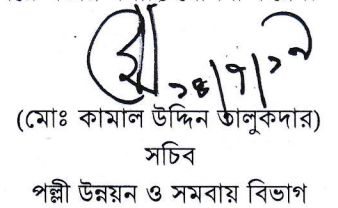 ১৪/৭/১৯
(মোঃ কামাল উদ্দিন তালুকদার)
সচিব
পল্লী উন্নয়ন ও সমবায় বিভাগ